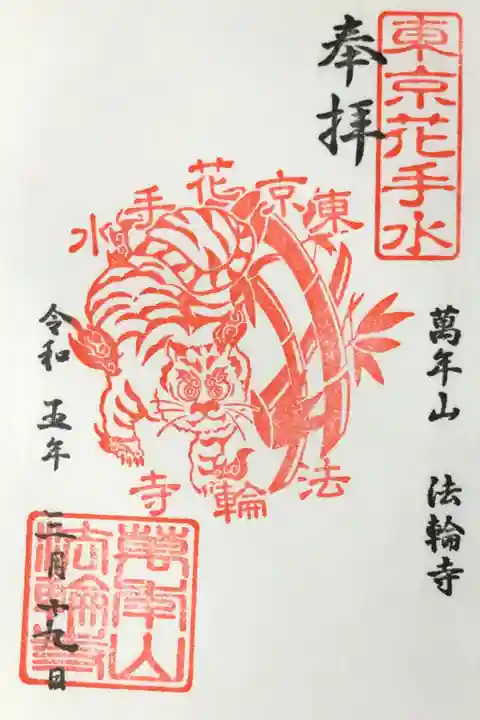 東京花手水
奉拝
東京花手水
法輪寺
萬年山 法輪寺
令和 五年
三月十九日
萬年山
法輪寺